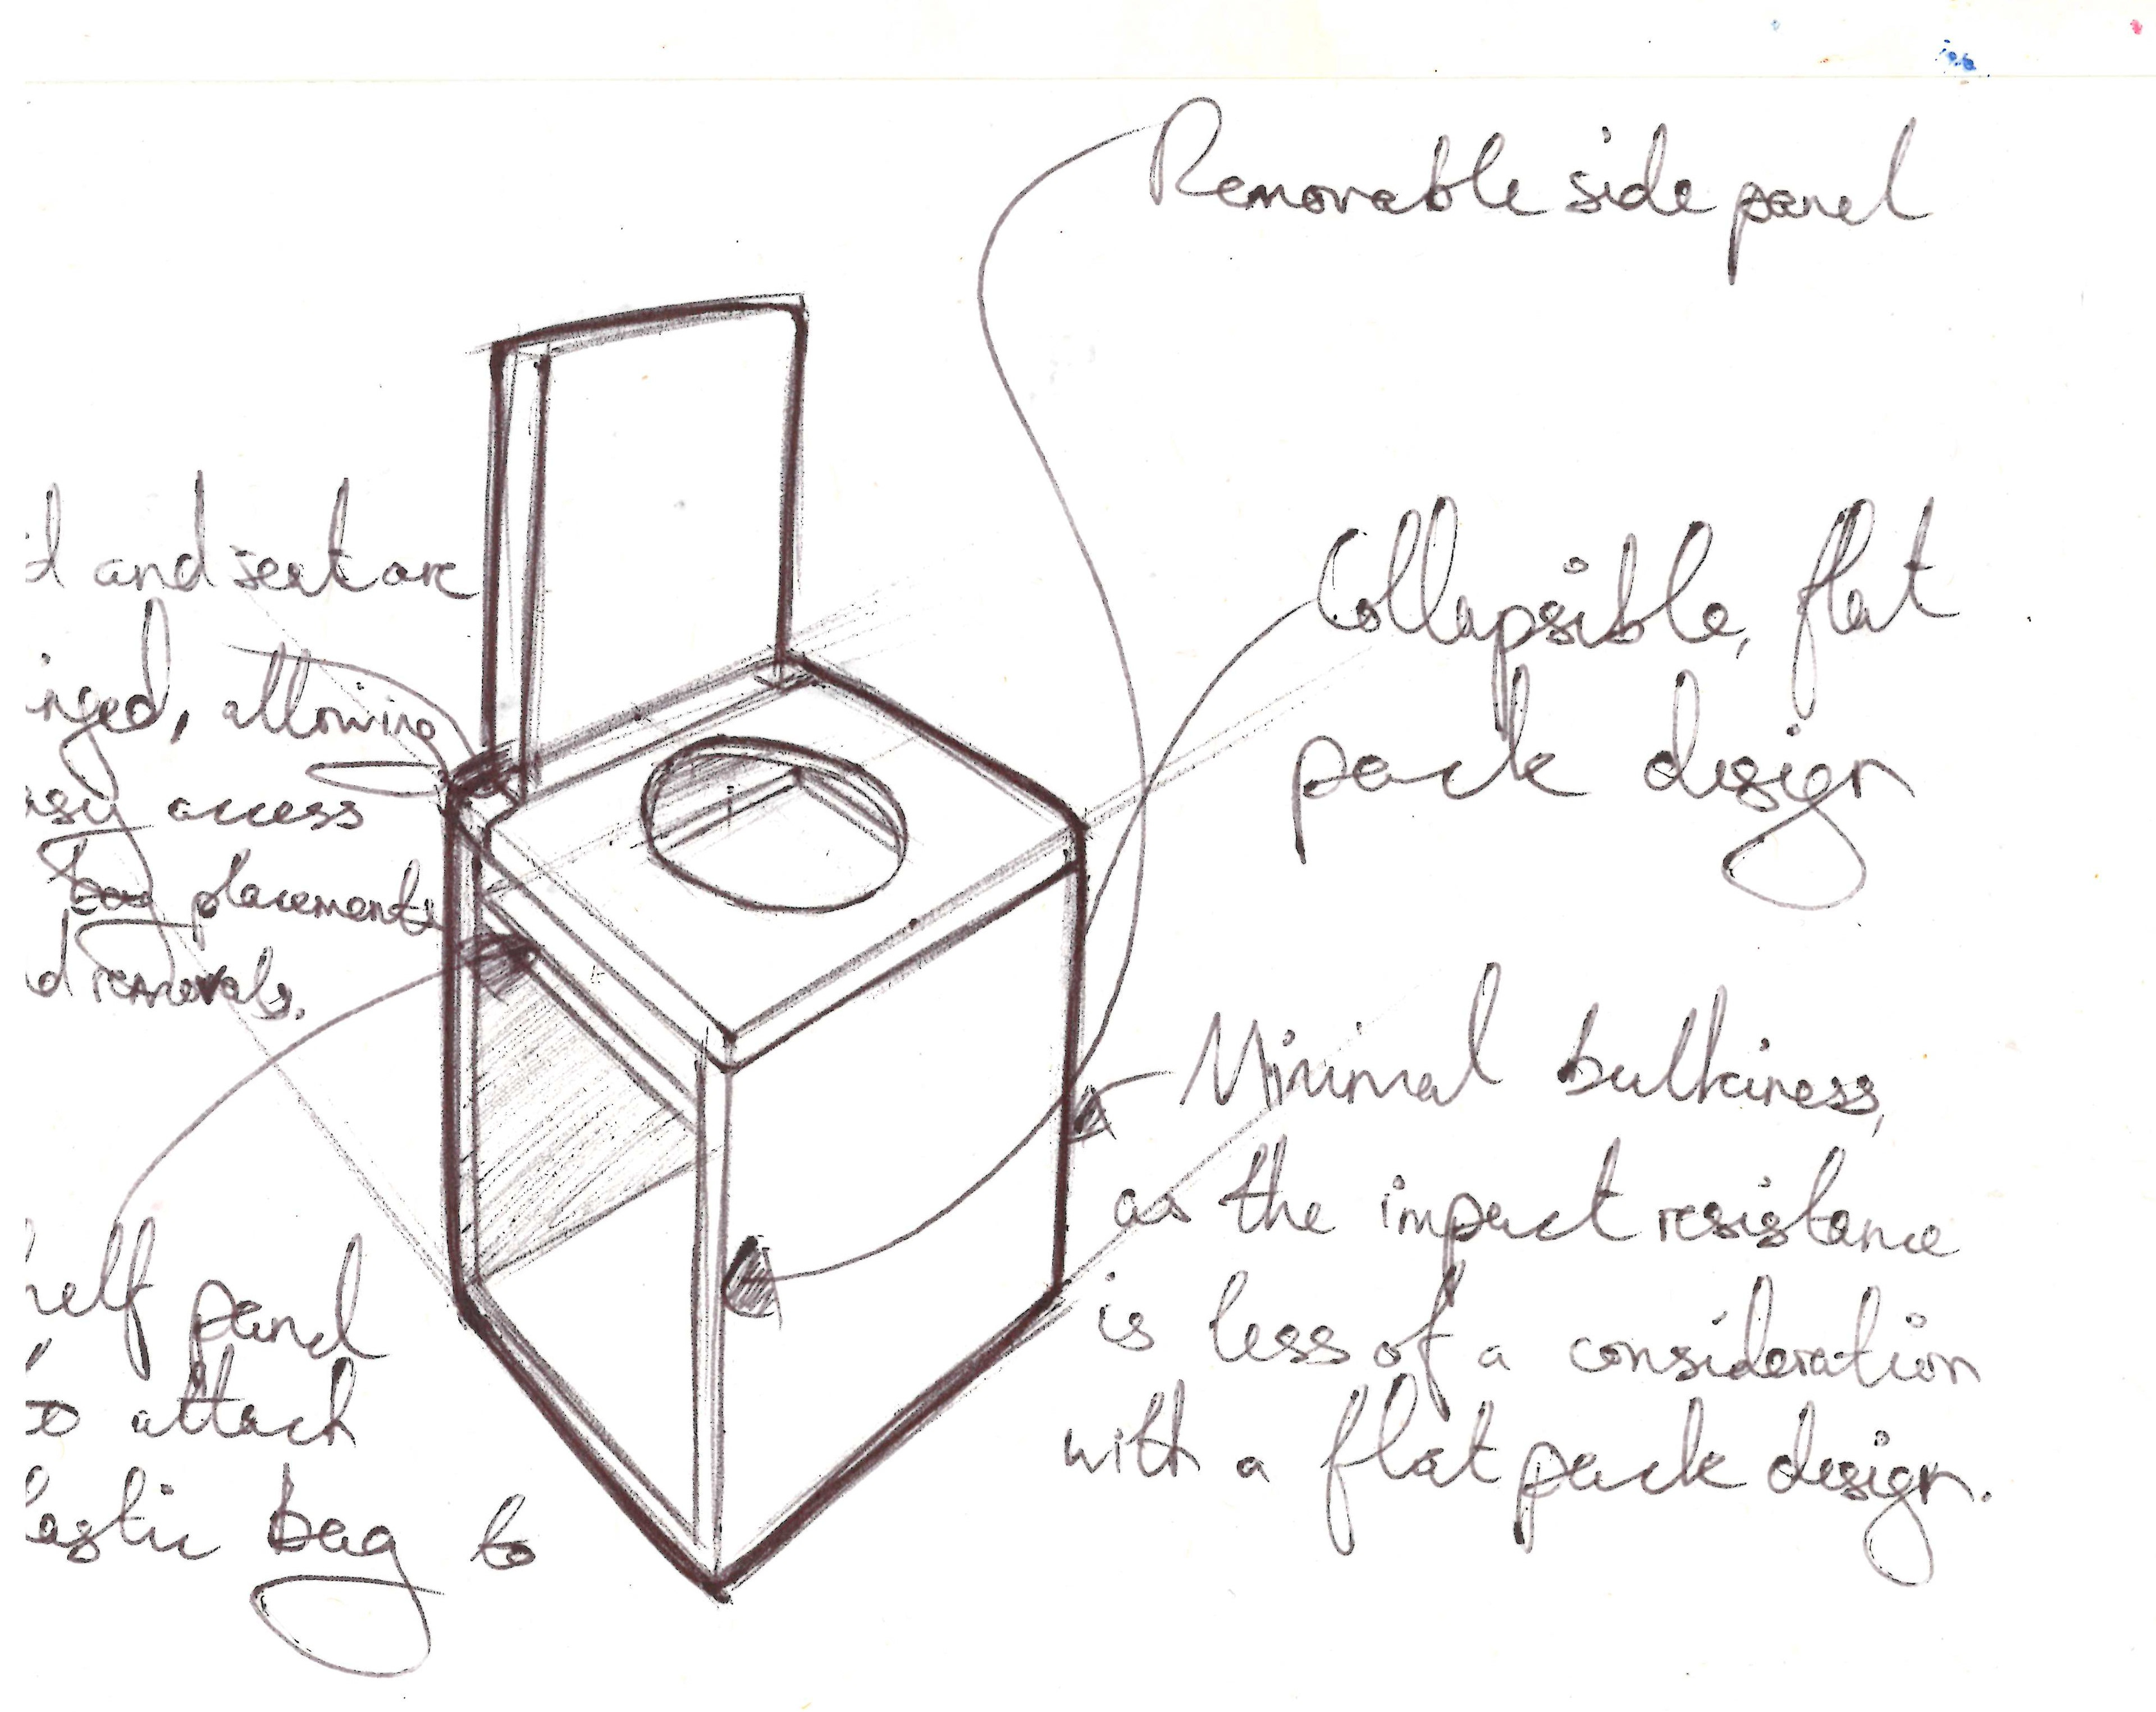 Removable side panel
Collapsible, flat
pack design
Minimal bulkiness,
as the impact resistance
is less of a consideration
with a flat pack design.
d and seat are
inged, allowing
asy access
placements
d removals.
helf panel
to attach
lastic bag to